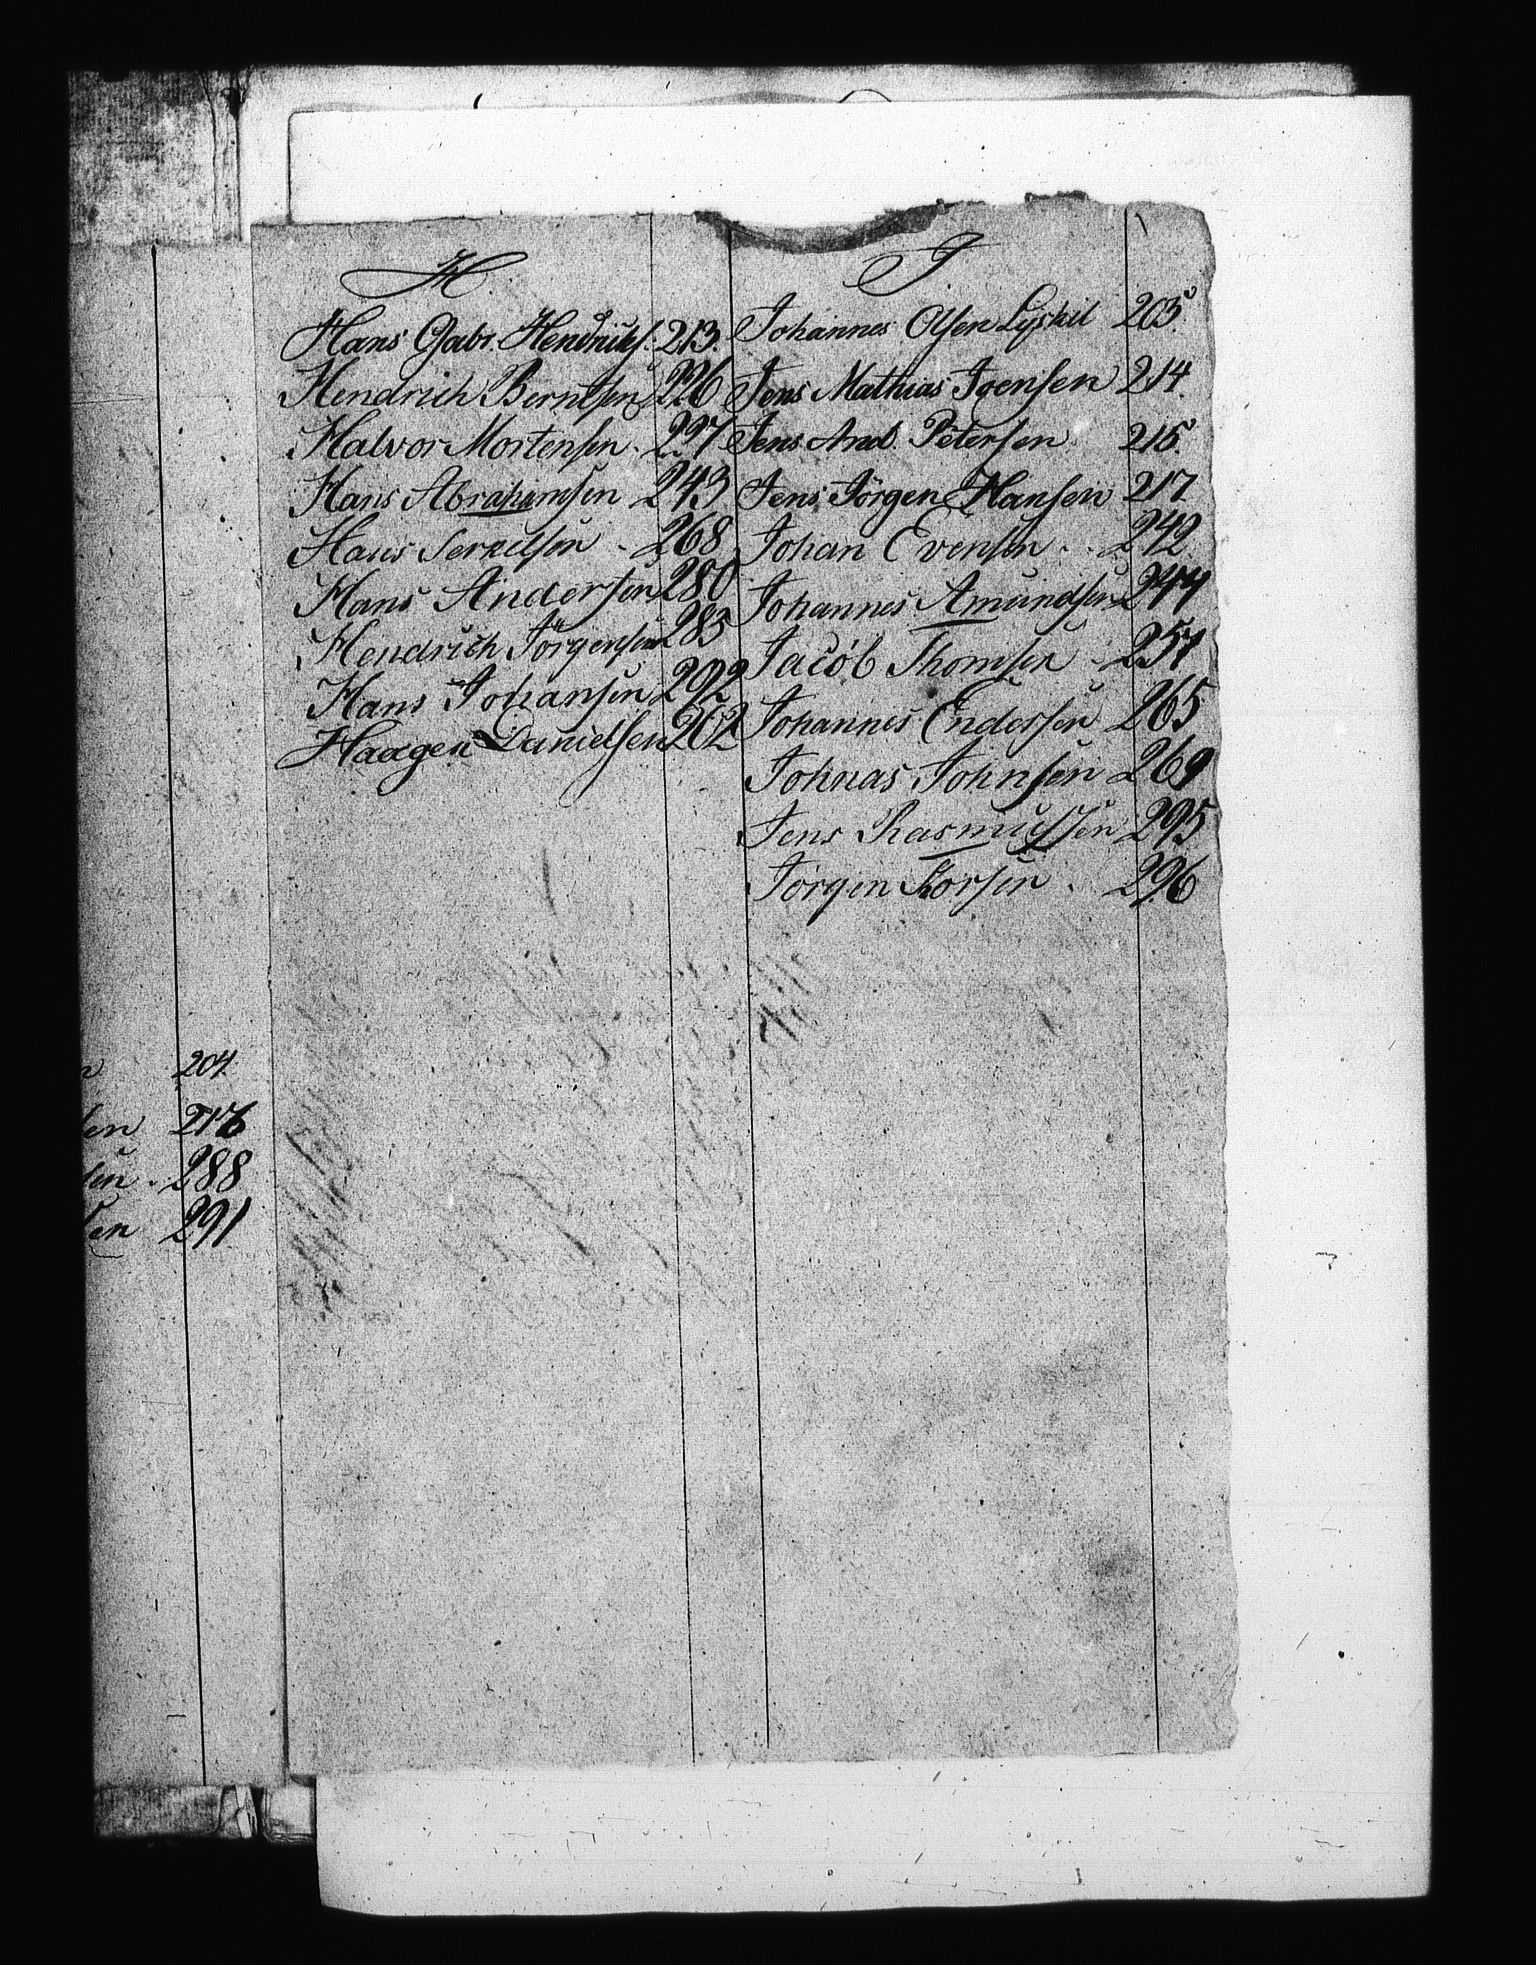 204.
sen 216
sen . 288
sen 291
H
Hans Gabr. Hendriks. 213.
Hendrich Berntsen 226
Halvor Mortensen . 227
Hans Abrahamsen 243
Hans . 268
Hans Andersen 280
Hendrich Jörgensen 283
Hans Johansen 292
Haagen Danielsen 262
J
Johannes Olsen Lyskil 203.
Jens Mathias Joensen 214.
Jens And. Petersen 215.
Jens Jörgen Hansen 217
Johan Evensen . . 242
Johannes Amundsen 244
Jacob Thomsen . 257
Johannes Endersen 265
Johnas Johnsen 269
Jens Rasmussen 295
Jörgen Torsen . 296